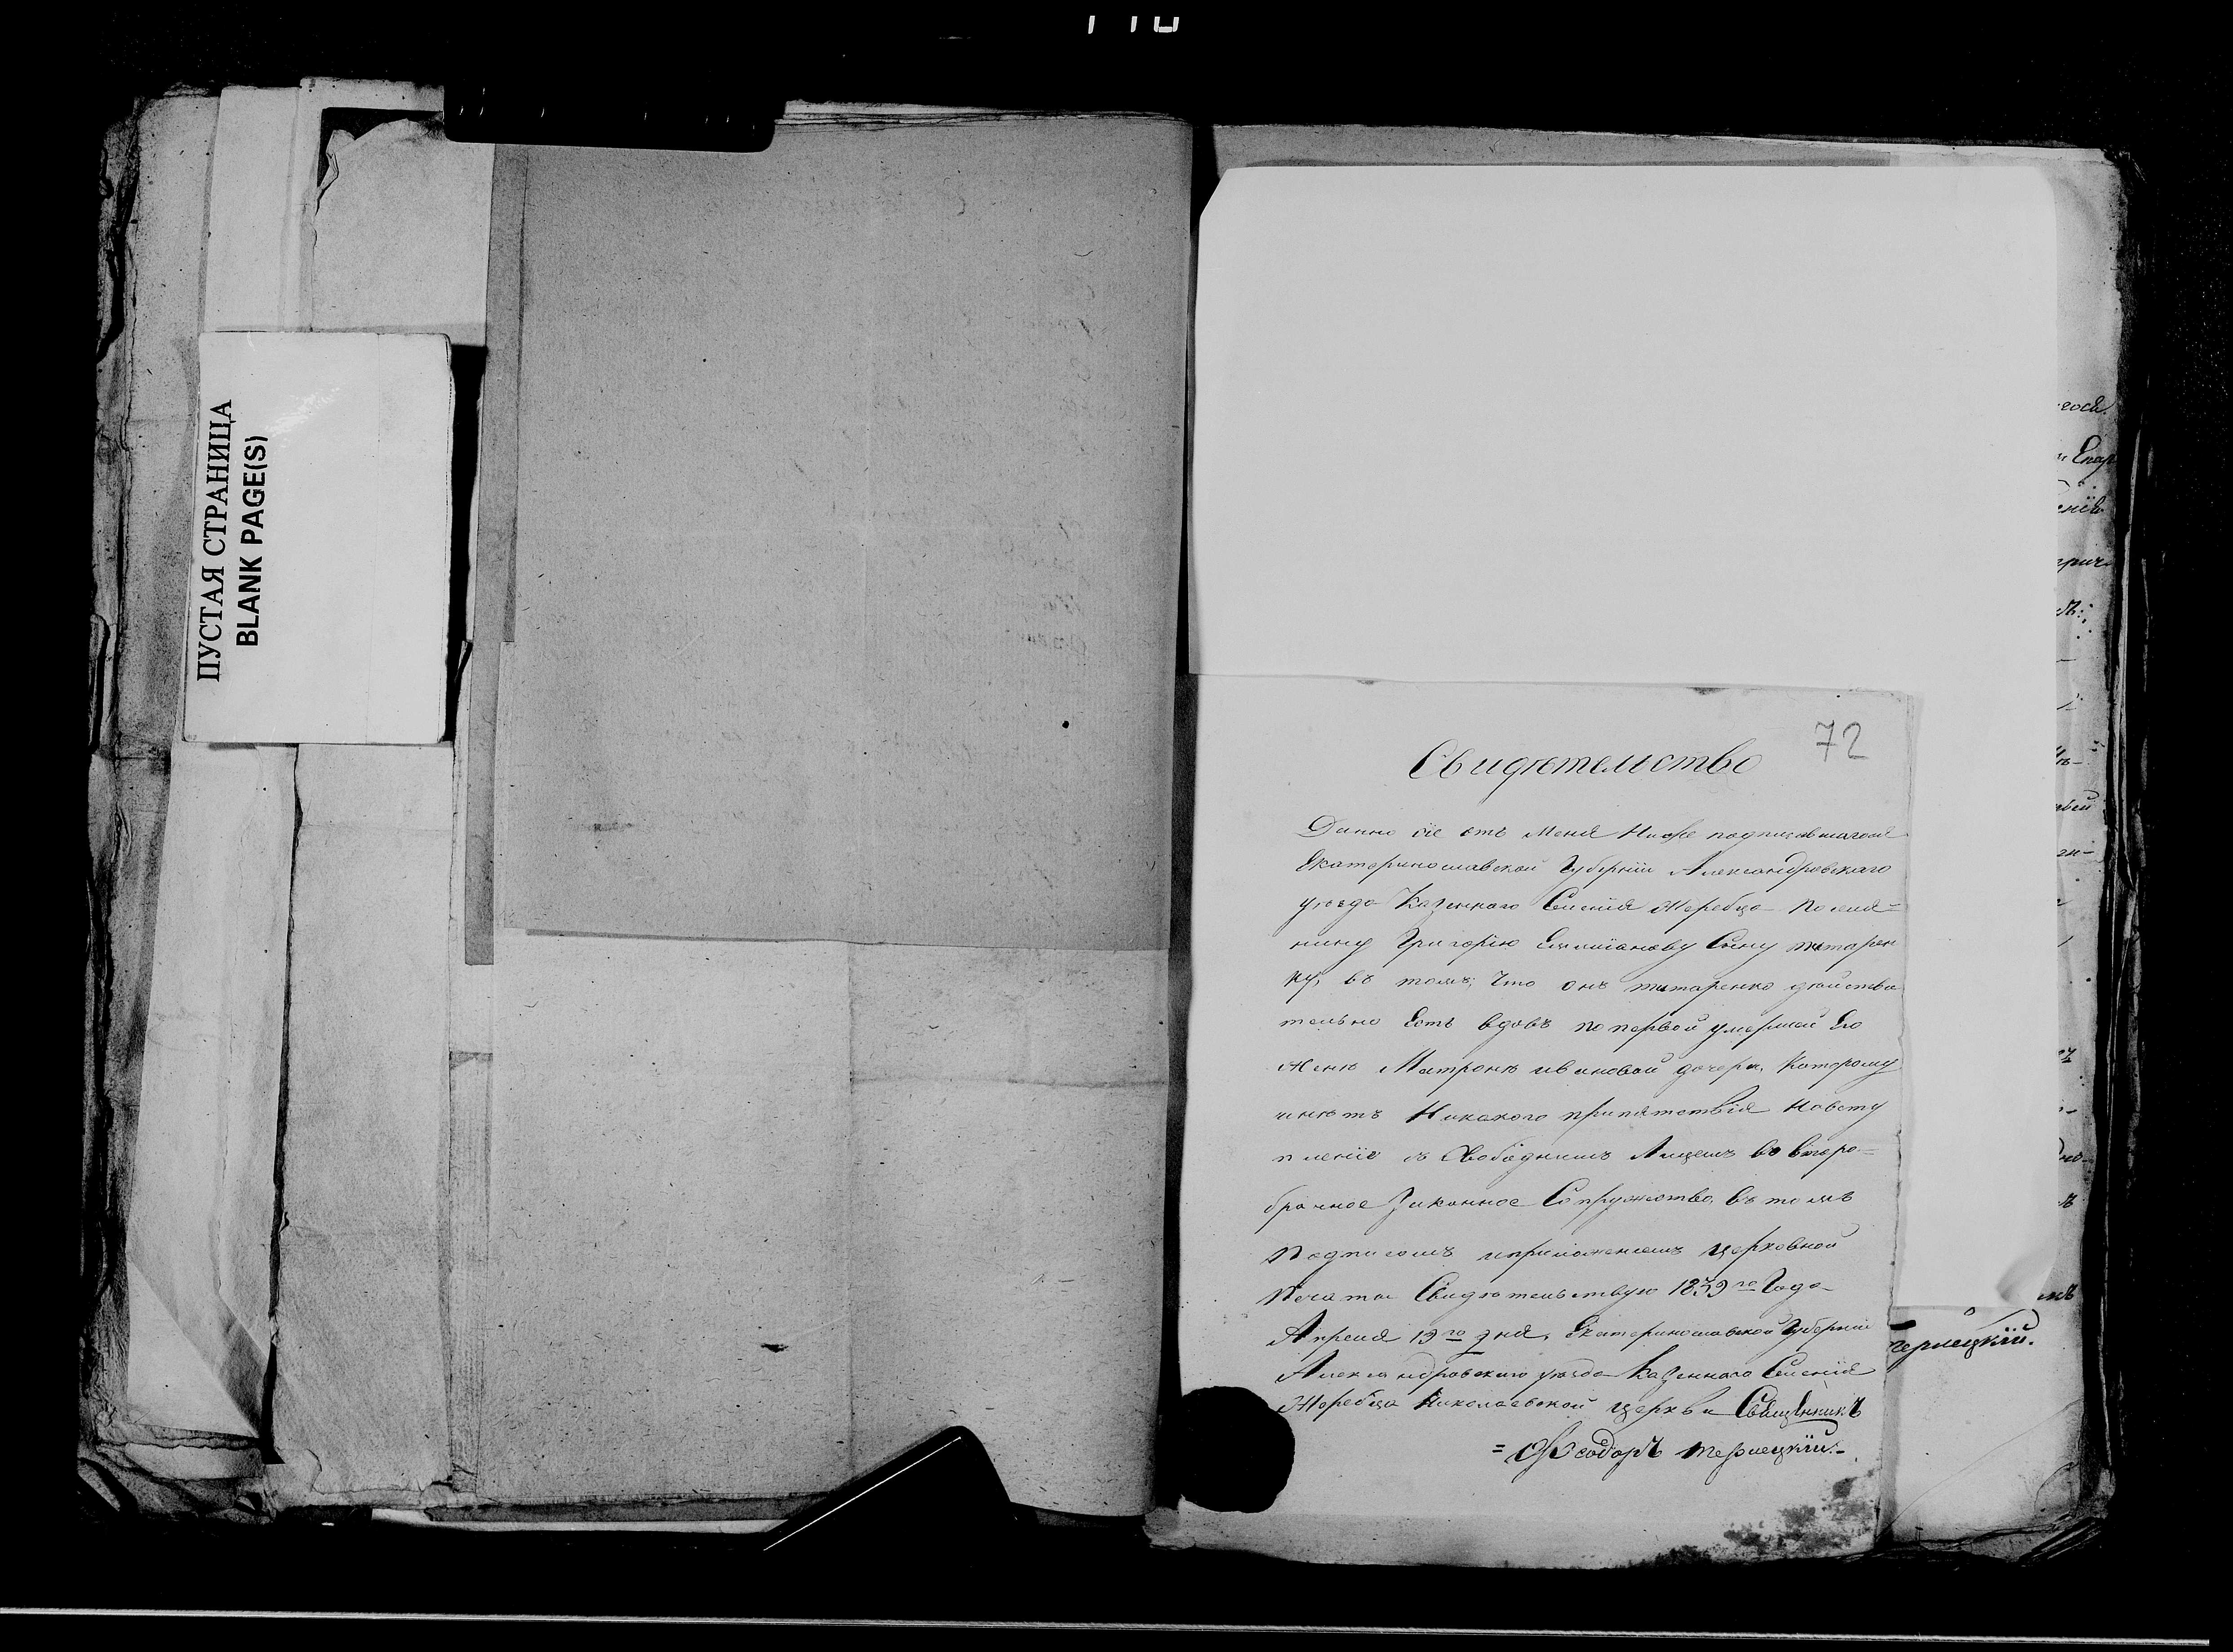 ПУСТАЯ СТРАНИЦА
BLANK PAGE(S)
72
Свидѣтельство
Данно сіе отъ меня Ниже подписавшагося
Екатеринославской Губерніи Александровскаго
уѣзда Казеннаго Селенія Жеребца Поселя=
нину Григорію Емиліанову Сыну титарен
ку, въ томъ; что онъ титаренко дѣйстви
тельно Есть вдовъ по первой умершей Его
женѣ Матронѣ ивановой дочери, Которому
инѣтъ Никакого припятствія Ковсту
пленію съ Свободнимъ Лицемъ во второ=
брачное Законное Сопружество, Въ томъ
Подписомъ иприложеніемъ церковной
Печати Свидѣтельствую 1839го Года
Апреля 19го дня, Екатеринославской Губерніи
Александровскаго уѣзда Казеннаго Селенія
Жеребца Николаевской церкви СвящЕнникЪ
=Ѳеодоръ терлецкій.-
терлецкій.